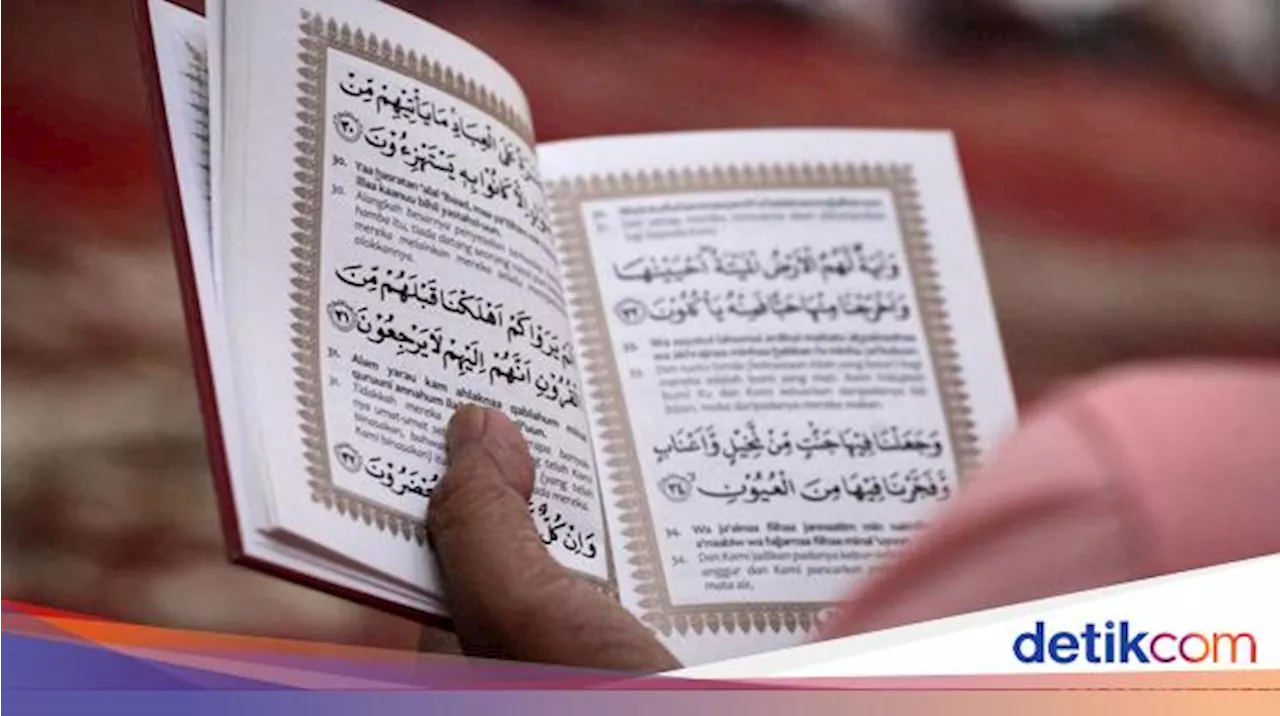 عَلَى الْعِبَادِ مَا يَأْتِيْهِمْ مِّنْ
اِلَّا كَانُوْا بِهٖ يَسْتَهْزِءُوْنَ ٣٠
30. Yaa hasratan 'alal 'ibaad, maa ya'tiihim
illaa kaanuu bihii yastahzi'uun.
30. Alangkah besarnya penyesalan
hamba itu, tiada datang seorang
mereka melainkan mereka selalu
olokkannya.
اَلَمْ يَرَوْا كَمْ اَهْلَكْنَا قَبْلَهُمْ مِّنَ
الْقُرُوْنِ اَنَّهُمْ اِلَيْهِمْ لَا يَرْجِعُوْنَ ٣١
31. Alam yarau kam ahlaknaa qablahum minal
quruuni annahum
31. Tidakkah mereka banyak
nya umat-umat telah Kami
binasakan, bahwa (yang telah
Kami binasakan) pada mereka.
وَاِنْ كُلٌّ
مُحْضَرُوْنَ ٣٢
وَاٰيَةٌ لَّهُمُ الْاَرْضُ الْمَيْتَةُ اَحْيَيْنٰهَا
وَاَخْرَجْنَا مِنْهَا حَبًّا فَمِنْهُ يَأْكُلُوْنَ ٣٣
33. Wa aayatul lahumul ardhul maitatu ahyainaahaa
wa akhrajnaa minhaa habban fa minhu ya'kuluun.
33. Dan suatu tanda (kekuasaan Allah yang besar) bagi
mereka adalah bumi yang mati. Kami hidupkan
bumi itu dan Kami keluarkan daripadanya biji-
bijian, maka daripadanya mereka makan.
وَجَعَلْنَا فِيْهَا جَنّٰتٍ مِّنْ نَّخِيْلٍ وَّاَعْنَابٍ
وَّفَجَّرْنَا فِيْهَا مِنَ الْعُيُوْنِ ٣٤
34. Wa ja'alnaa fiihaa jannaatim min nakhiil
a'naabiw wa fajjarnaa fiihaa minal 'uyuun
34. Dan Kami jadikan padanya kebun
anggur dan Kami pancarkan
mata air,
detikcom